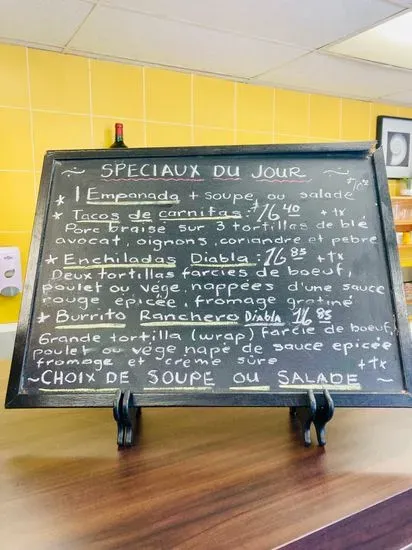 ~ SPECIAUX DU JOUR ~
* 1 Empanada + soupe ou salade
* Tacos de carnitas: $16.40 + tx
Porc braisé sur 3 tortillas de blé
avocat, oignons, coriandre et pebre
* Enchiladas Diabla: 16.85 + tx
Deux tortillas farcies de boeuf,
poulet ou végé, nappées d'une sauce
rouge épicée, fromage gratiné
* Burrito Ranchero Diabla 16.85
Grande tortilla (wrap) farcie de boeuf,
poulet ou végé napé de sauce épicée
fromage et crème sûre + tx
~CHOIX DE SOUPE OU SALADE ~